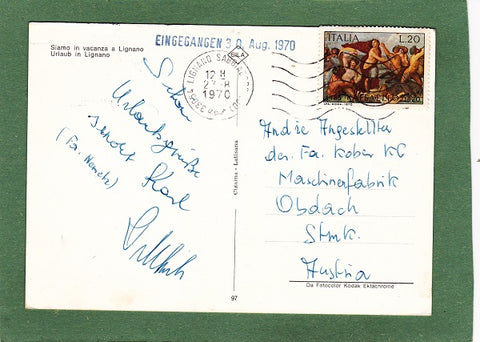 Siamo in vacanza a Lignano
Urlaub in Lignano
EINGEGANGEN 30. Aug. 1970
LIGNANO SABB
33054
12 H
1970
ITALIA
L.20
Schöne
Urlaubsgrüße
sendet Karl
(Fa. Nemetz)
An die Angestellten
der Fa. Kober KG
Maschinenfabrik
Obdach
Stmk.
Austria
97
Da Fotocolor Kodak Ektachrome